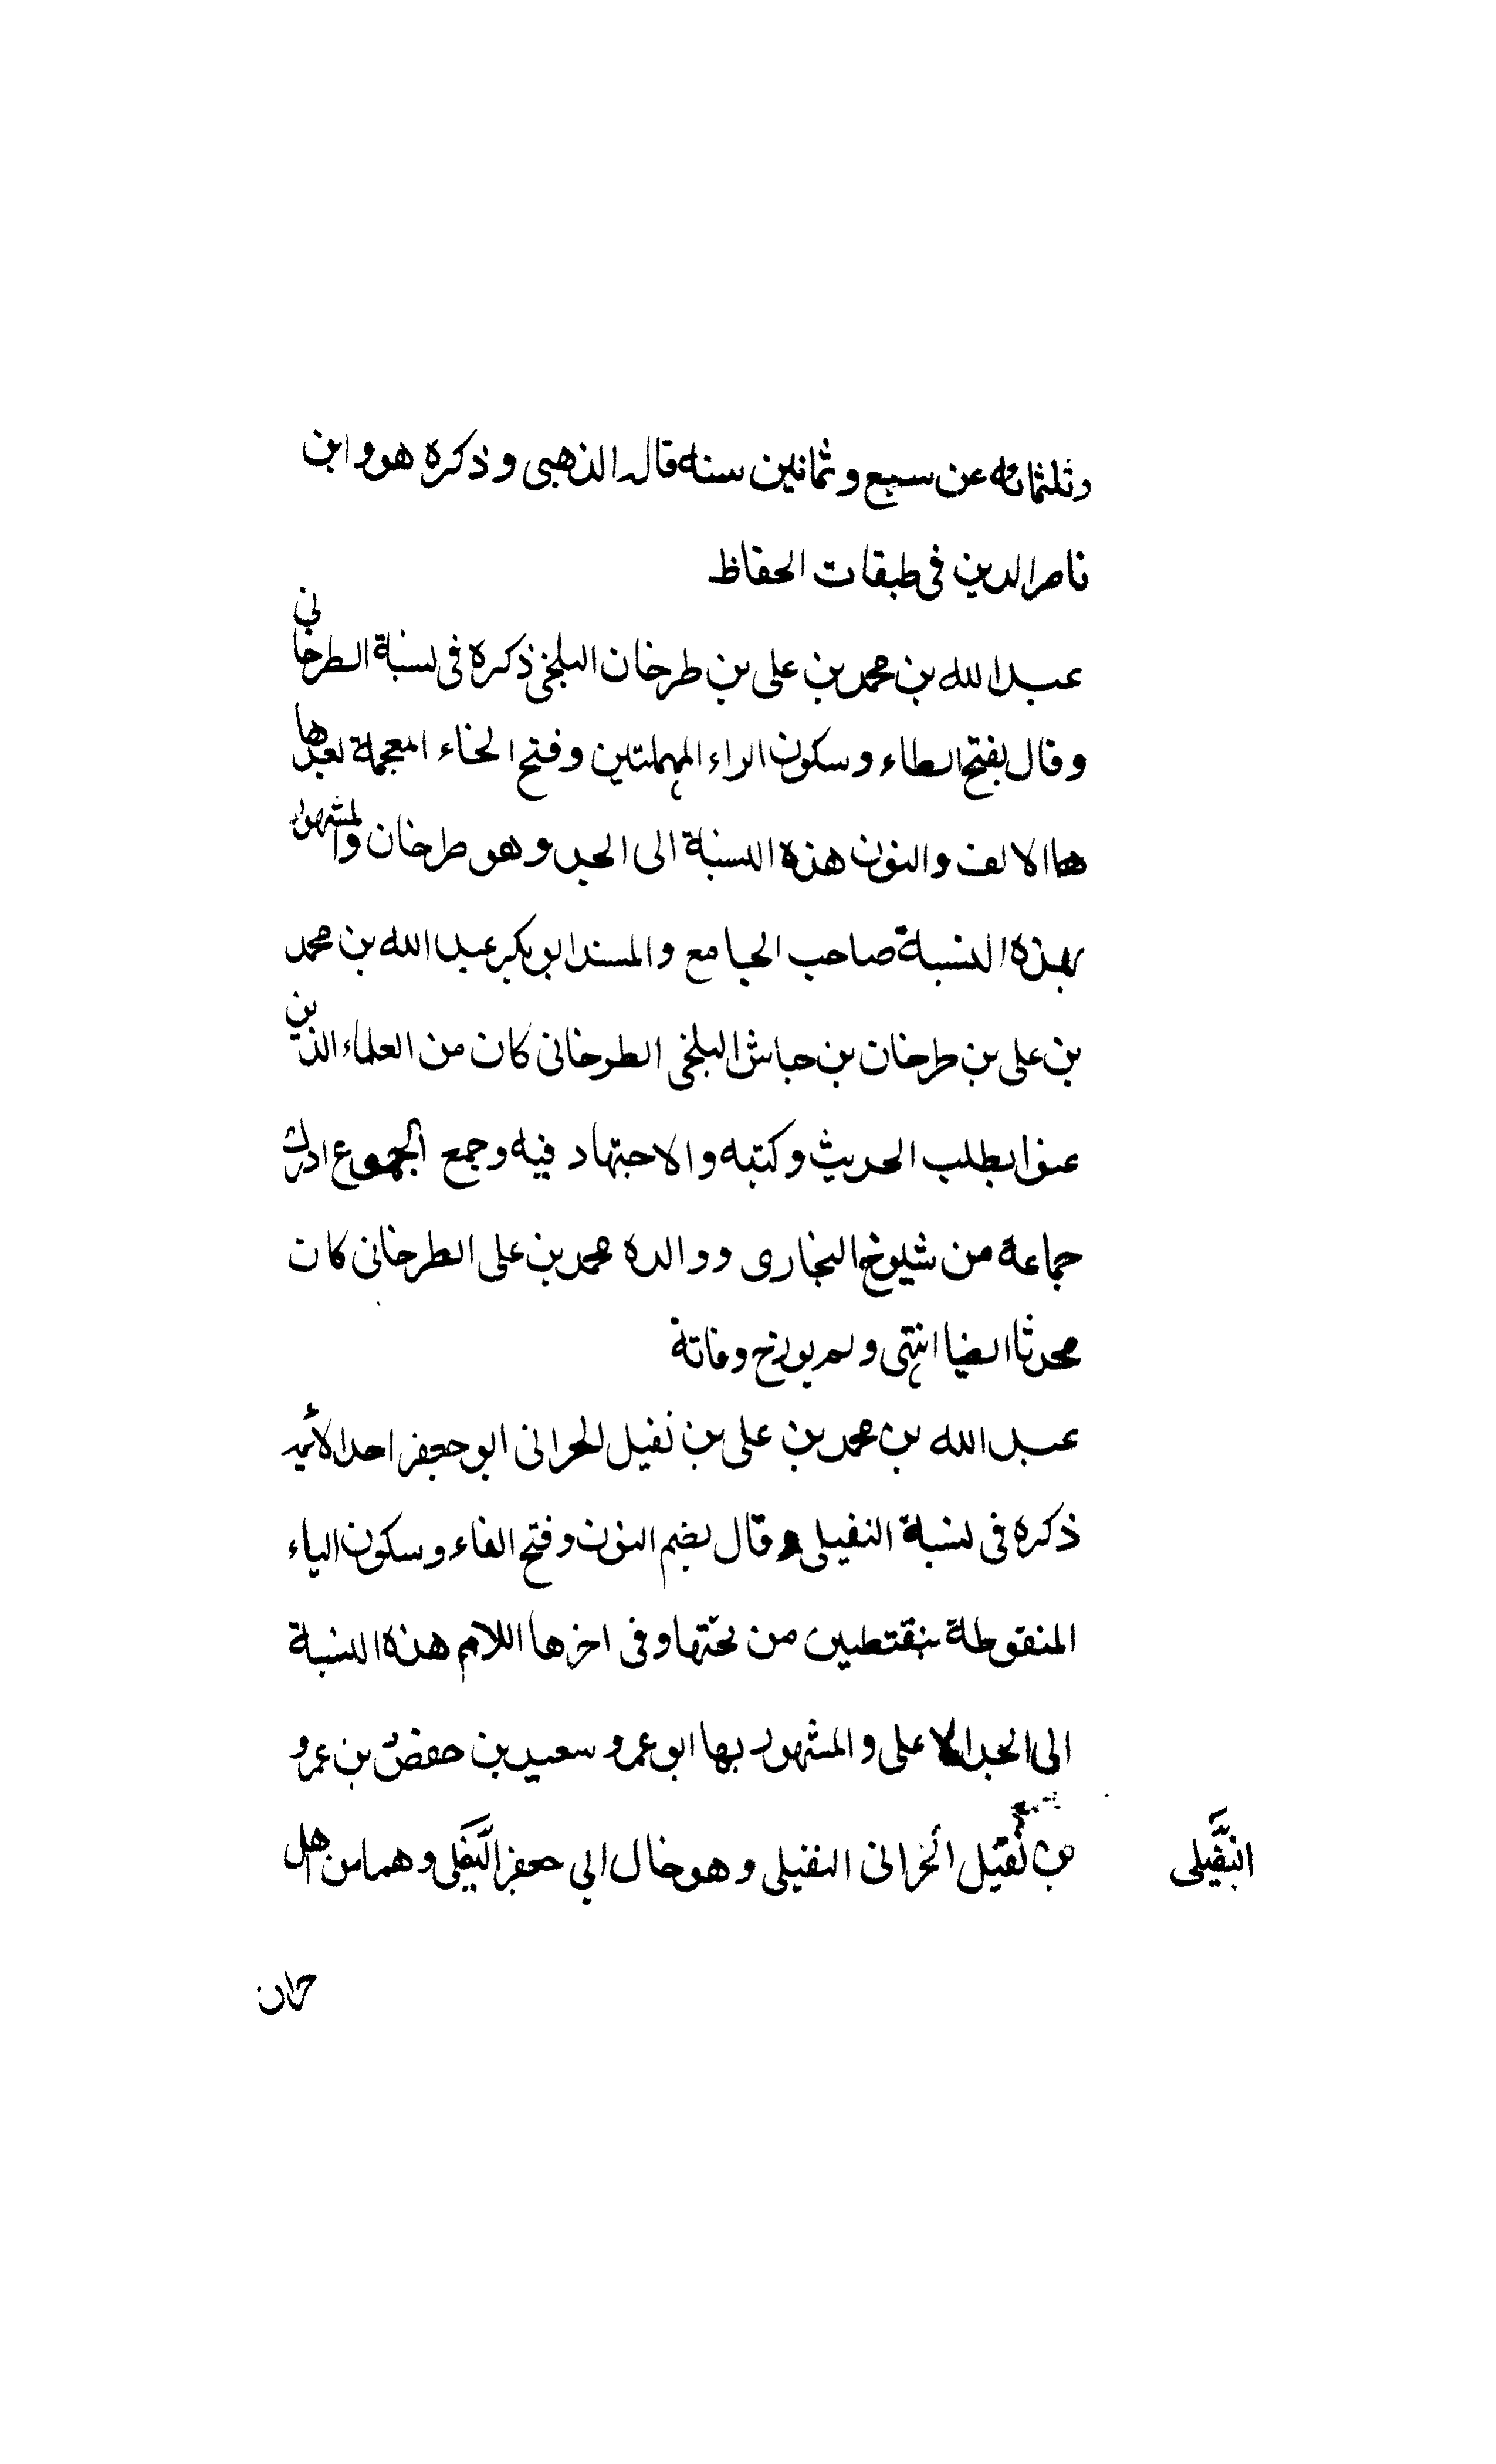 وثلثمائة عن سبع وثمانين سنه قاله الذهبى وذكره هو وابن
ناصر الدين فى طبقات الحفاظ
عبد الله بن محمد بن على بن طرخان البلخى ذكره فى نسبة الطرخانى
وقال بفتح الطاء وسكون الراء المهملتين وفتح الخاء المعجمة بعدها
ها الالف والنون هذه النسبة الى الجد وهو طرخان والمشهور
بهذه النسبة صاحب الجامع والمسند ابو بكر عبد الله بن محمد
بن على بن طرخان بن جباش البلخى الطرخانى كان من العلماء الذين
عنوا بطلب الحديث وكتبه والاجتهاد فيه وجمع الجموع ادرك
جماعة من شيوخ البخارى ووالده محمد بن على الطرخانى كان
محدثا ايضا انتهى ولم يورخ وفاته
عبد الله بن محمد بن على بن نفيل الحرانى ابو جعفر احد الائمه
ذكره فى نسبة النفيلى وقال بضم النون وفتح الفاء وسكون الياء
المنقوطة بنقتطين من تحتها وفى اخرها اللام هذه النسبة
الى الجد الاعلى والمشهور بها ابو عمرو سعيد بن حفص بن عمرو
بن نفيل الحرانى النفيلى وهو خال ابي جعفر النفيلى وهما من اهل
النفيلى
حران